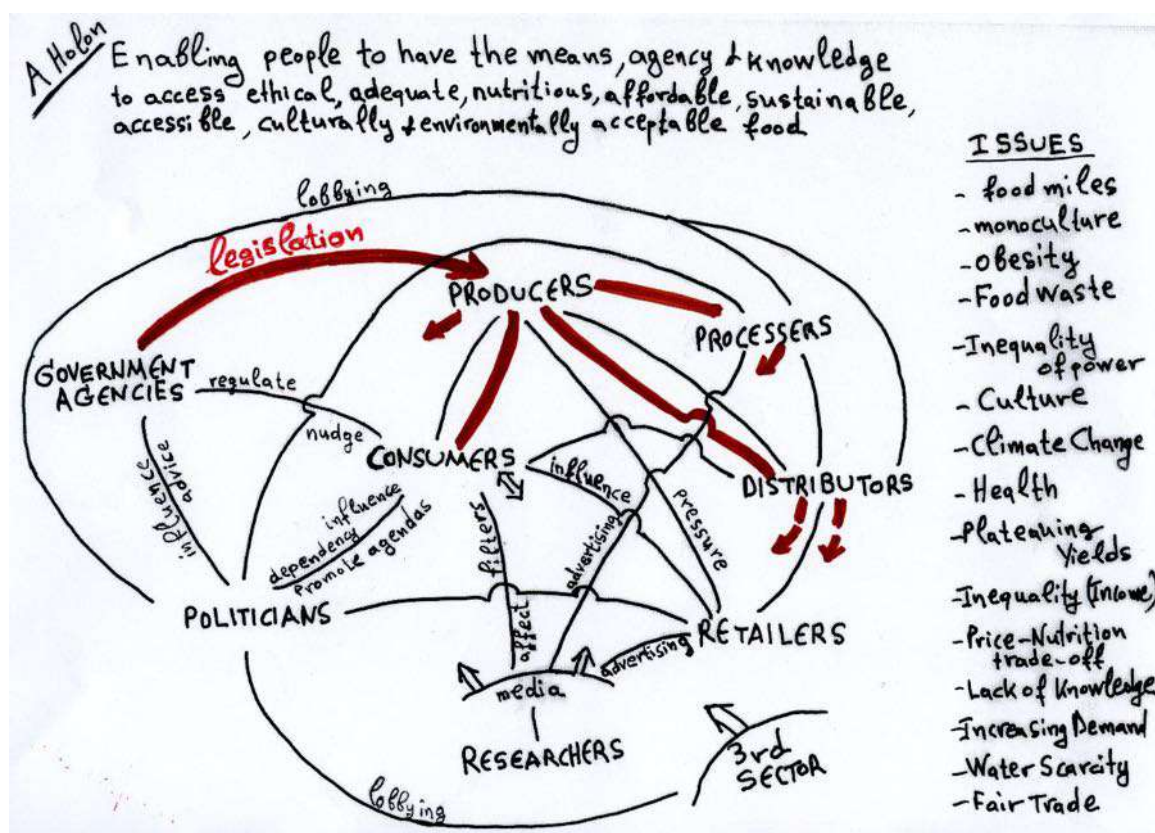 A Holon
Enabling people to have the means, agency & knowledge
to access ethical, adequate, nutritious, affordable, sustainable,
accessible, culturally & environmentally acceptable food
lobbying
legislation
PRODUCERS
PROCESSERS
GOVERNMENT
AGENCIES
regulate
nudge
CONSUMERS
DISTRIBUTORS
influence
advice
influence
dependency
promote agendas
filters
affect
influence
pressure
advertising
POLITICIANS
RETAILERS
advertising
media
RESEARCHERS
3rd
SECTOR
lobbying
ISSUES
- food miles
- monoculture
- obesity
- Food Waste
- Inequality
of power
- Culture
- Climate Change
- Health
- Plateauing
Yields
- Inequality (Income)
- Price-Nutrition
trade-off
- Lack of Knowledge
- Increasing Demand
- Water Scarcity
- Fair Trade